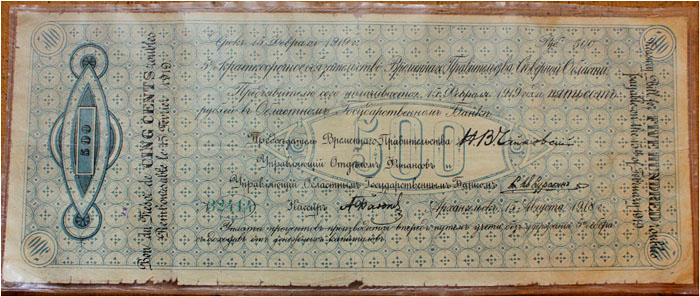 Срокъ 15 Февраля 1919 г.
Руб. 500
5% Краткосрочное обязательство Временнаго Правительства Сѣверной Области
Предъявителю сего уплачивается 15 Февраля 1919 года пятьсотъ
рублей въ Областномъ Государственномъ Банкѣ
Предсѣдатель Временнаго Правительства
500
Управляющій Отдѣломъ Финансовъ и
Управляющій Областнымъ Государственнымъ Банкомъ
Кассиръ
Архангельскъ, 15 Августа 1918 г.
Уплата процентовъ производится впередъ путемъ учета
съ доходовъ отъ денежныхъ капиталовъ
500
Bon du Trésor de CINQ CENTS roubles
Remboursable le 15 Février 1919
Treasury Bill for FIVE HUNDRED roubles
payable on the 15th of February 1919